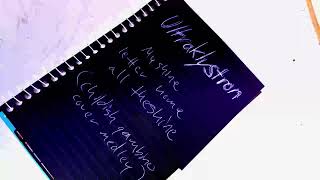 Ultraklystron
Nushine
letter home
all theshine
(childish gambino
cover medley)